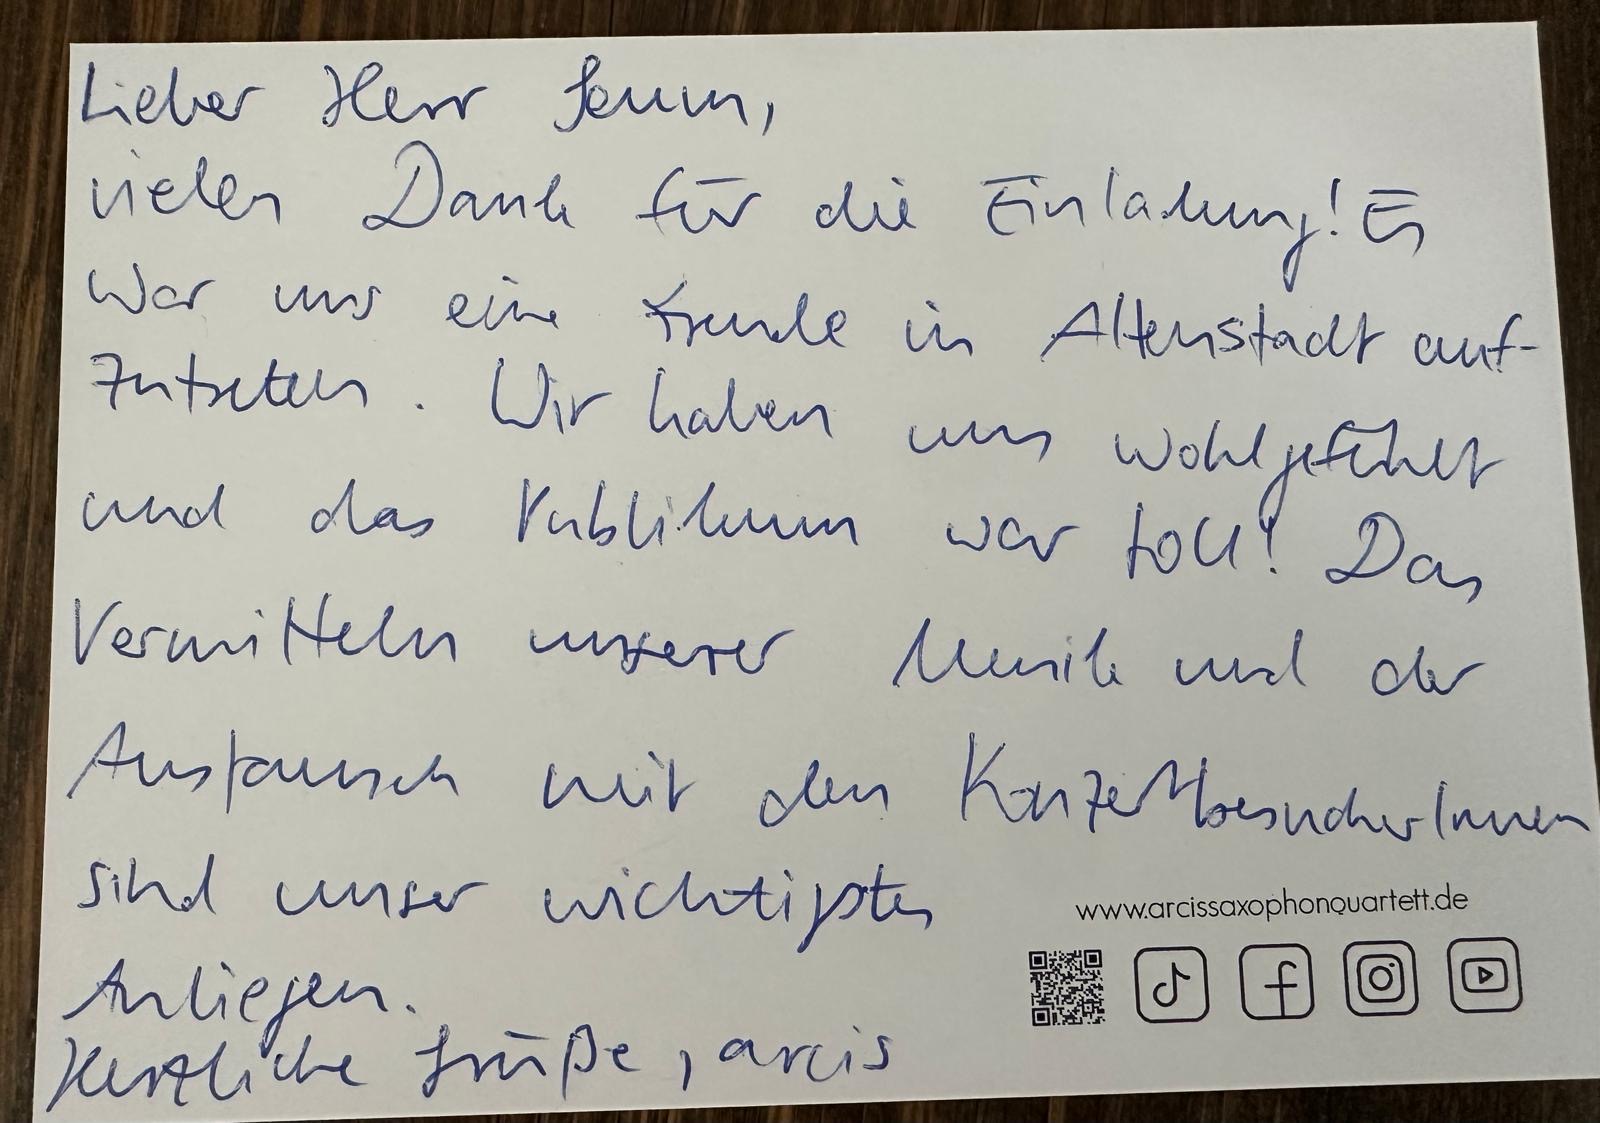 Lieber Herr
vielen Dank für die Einladung! Es
war uns eine Freude in Altenstadt auf-
zutreten. Wir haben uns wohlgefühlt
und das Publikum war toll! Das
Vermitteln unserer Musik und der
Austausch mit den KonzertbesucherInnen
sind unser wichtigstes
Anliegen.
Herzliche Grüße, arcis
www.arcissaxophonquartett.de